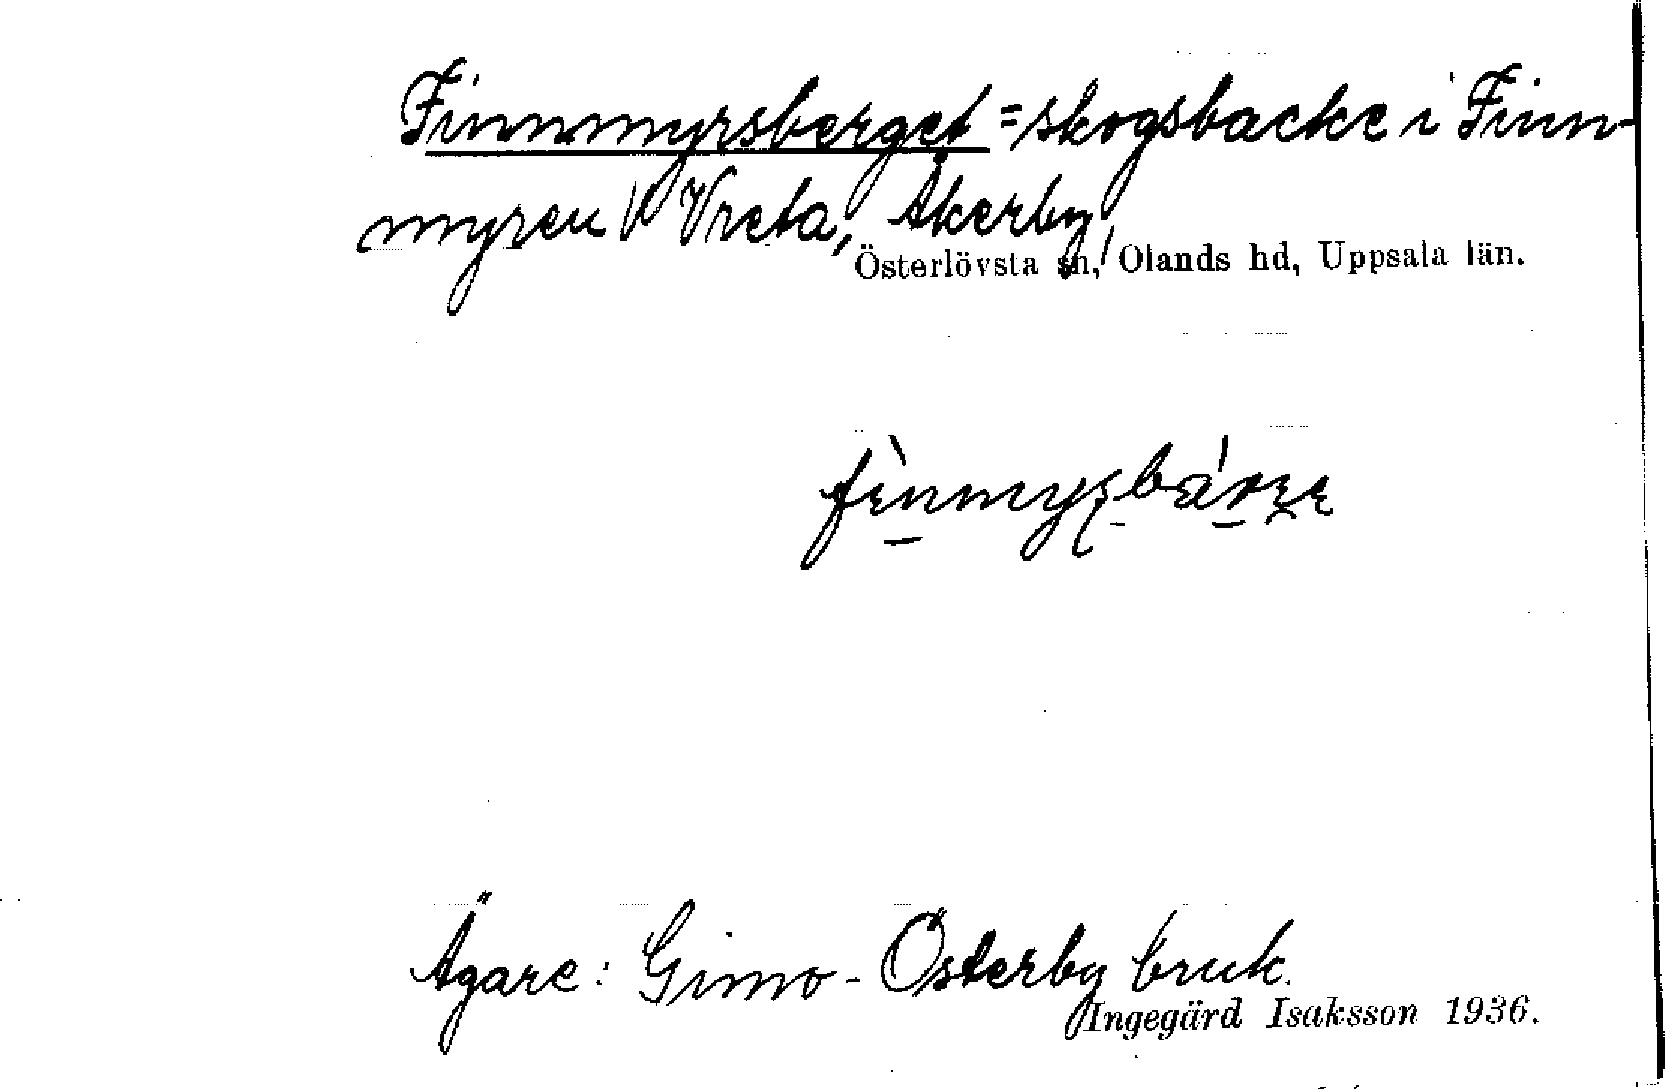 Finnmyrsberget = skogsbacke i Finn-
myren V Vreta, Åkerby,
Österlövsta sn, Olands hd, Uppsala län.
Ägare: Gimo-Österby bruk.
Ingegärd Isaksson 1936.